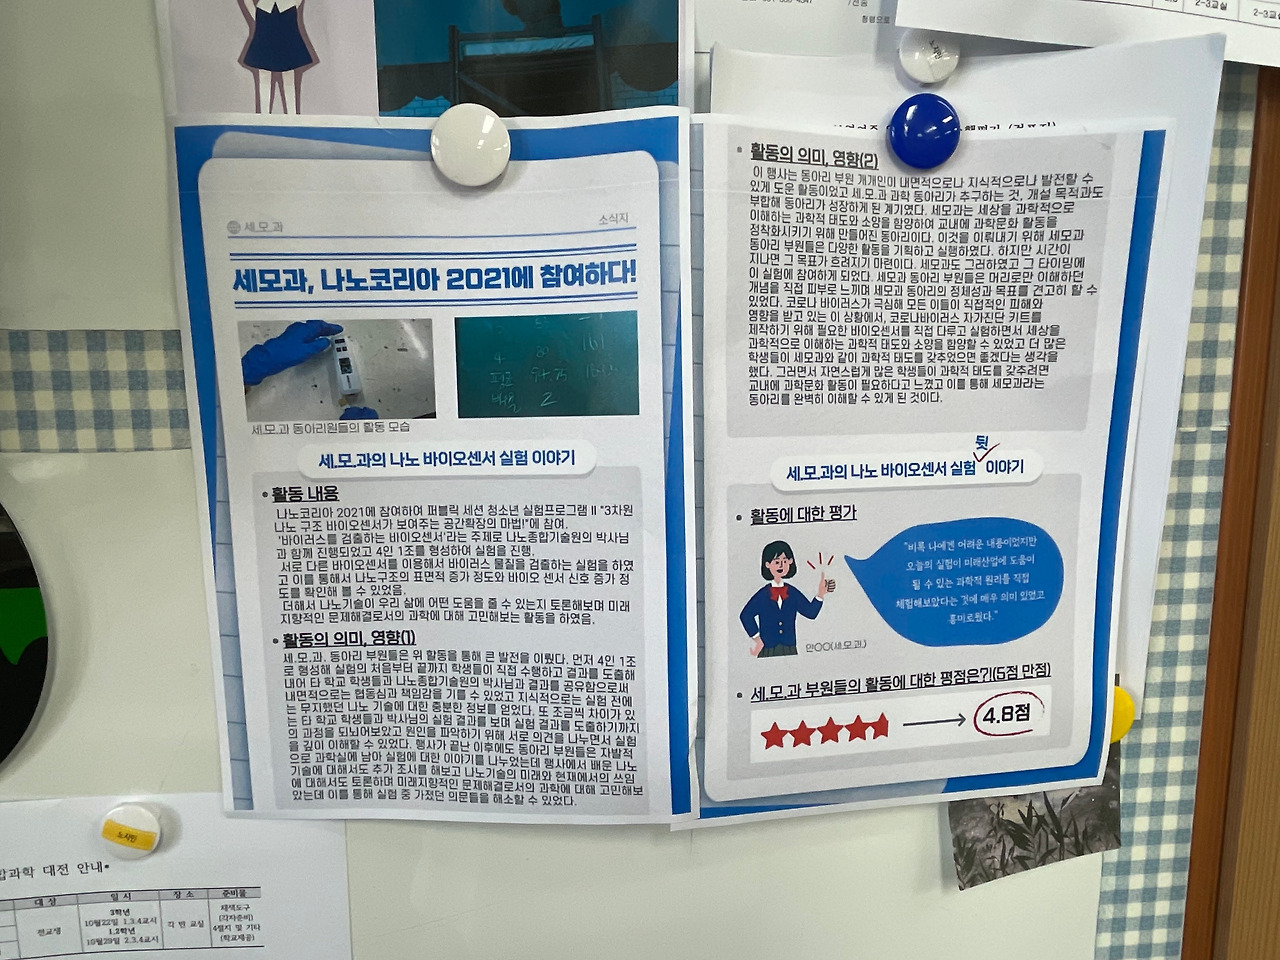 2-3교실
세.모.과
소식지
세모과, 나노코리아 2021에 참여하다!
세.모.과 동아리원들의 활동 모습
세.모.과의 나노 바이오센서 실험 이야기
• 활동 내용
나노코리아 2021에 참여하여 퍼블릭 세션 청소년 실험프로그램 II "3차원
나노 구조 바이오센서가 보여주는 공간확장의 마법!"에 참여.
'바이러스를 검출하는 바이오센서'라는 주제로 나노종합기술원의 박사님
과 함께 진행되었고 4인 1조를 형성하여 실험을 진행.
서로 다른 바이오센서를 이용해서 바이러스 물질을 검출하는 실험을 하였
고 이를 통해서 나노구조의 표면적 증가 정도와 바이오 센서 신호 증가 정
도를 확인해 볼 수 있었음.
더해서 나노기술이 우리 삶에 어떤 도움을 줄 수 있는지 토론해보며 미래
지향적인 문제해결로서의 과학에 대해 고민해보는 활동을 하였음.
• 활동의 의미, 영향(1)
세.모.과. 동아리 부원들은 위 활동을 통해 큰 발전을 이뤘다. 먼저 4인 1조
로 형성해 실험의 처음부터 끝까지 학생들이 직접 수행하고 결과를 도출해
내어 타 학교 학생들과 나노종합기술원의 박사님과 결과를 공유함으로써
내면적으로는 협동심과 책임감을 기를 수 있었고 지식적으로는 실험 전에
는 무지했던 나노 기술에 대한 충분한 정보를 얻었다. 또 조금씩 차이가 있
는 타 학교 학생들과 박사님의 실험 결과를 보며 실험 결과를 도출하기까지
의 과정을 되뇌어보았고 원인을 파악하기 위해 서로 의견을 나누면서 실험
을 깊이 이해할 수 있었다. 행사가 끝난 이후에도 동아리 부원들은 자발적
으로 과학실에 남아 실험에 대한 이야기를 나누었는데 행사에서 배운 나노
기술에 대해서도 추가 조사를 해보고 나노기술의 미래와 현재에서의 쓰임
에 대해서도 토론하며 미래지향적인 문제해결로서의 과학에 대해 고민해보
았는데 이를 통해 실험 중 가졌던 의문들을 해소할 수 있었다.
• 활동의 의미, 영향(2)
이 행사는 동아리 부원 개개인이 내면적으로나 지식적으로나 발전할 수
있게 도운 활동이었고 세.모.과 과학 동아리가 추구하는 것, 개설 목적과도
부합해 동아리가 성장하게 된 계기였다. 세모과는 세상을 과학적으로
이해하는 과학적 태도와 소양을 함양하여 교내에 과학문화 활동을
정착화시키기 위해 만들어진 동아리이다. 이것을 이뤄내기 위해 세모과
동아리 부원들은 다양한 활동을 기획하고 실행하였다. 하지만 시간이
지나면 그 목표가 흐려지기 마련이다. 세모과도 그러하였고 그 타이밍에
이 실험에 참여하게 되었다. 세모과 동아리 부원들은 머리로만 이해하던
개념을 직접 피부로 느끼며 세모과 동아리의 정체성과 목표를 견고히 할 수
있었다. 코로나 바이러스가 극심해 모든 이들이 직접적인 피해와
영향을 받고 있는 이 상황에서, 코로나바이러스 자가진단 키트를
제작하기 위해 필요한 바이오센서를 직접 다루고 실험하면서 세상을
과학적으로 이해하는 과학적 태도와 소양을 함양할 수 있었고 더 많은
학생들이 세모과와 같이 과학적 태도를 갖추었으면 좋겠다는 생각을
했다. 그러면서 자연스럽게 많은 학생들이 과학적 태도를 갖추려면
교내에 과학문화 활동이 필요하다고 느꼈고 이를 통해 세모과라는
동아리를 완벽히 이해할 수 있게 된 것이다.
뒷
세.모.과의 나노 바이오센서 실험 이야기
• 활동에 대한 평가
"비록 나에겐 어려운 내용이었지만
오늘의 실험이 미래산업에 도움이
될 수 있는 과학적 원리를 직접
체험해보았다는 것에 매우 의미 있었고
흥미로웠다."
안○○(세.모.과.)
• 세.모.과 부원들의 활동에 대한 평점은?!(5점 만점)
4.8점
노사민
합과학 대전 안내*
대 상 일 시 장 소 준비물
전교생
3학년
10월22일 1,3,4교시
1,2학년
10월29일 2,3,4교시
각 반 교실
채색도구
(각자준비)
4절지 및 기타
(학교제공)